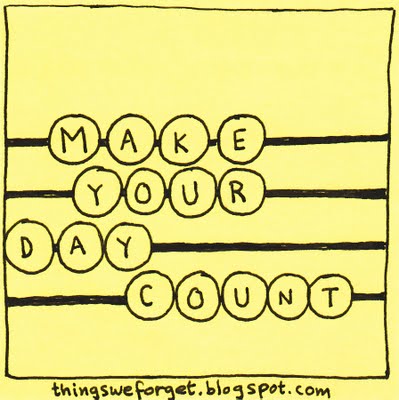 MAKE
YOUR
DAY
COUNT
thingsweforget.blogspot.com